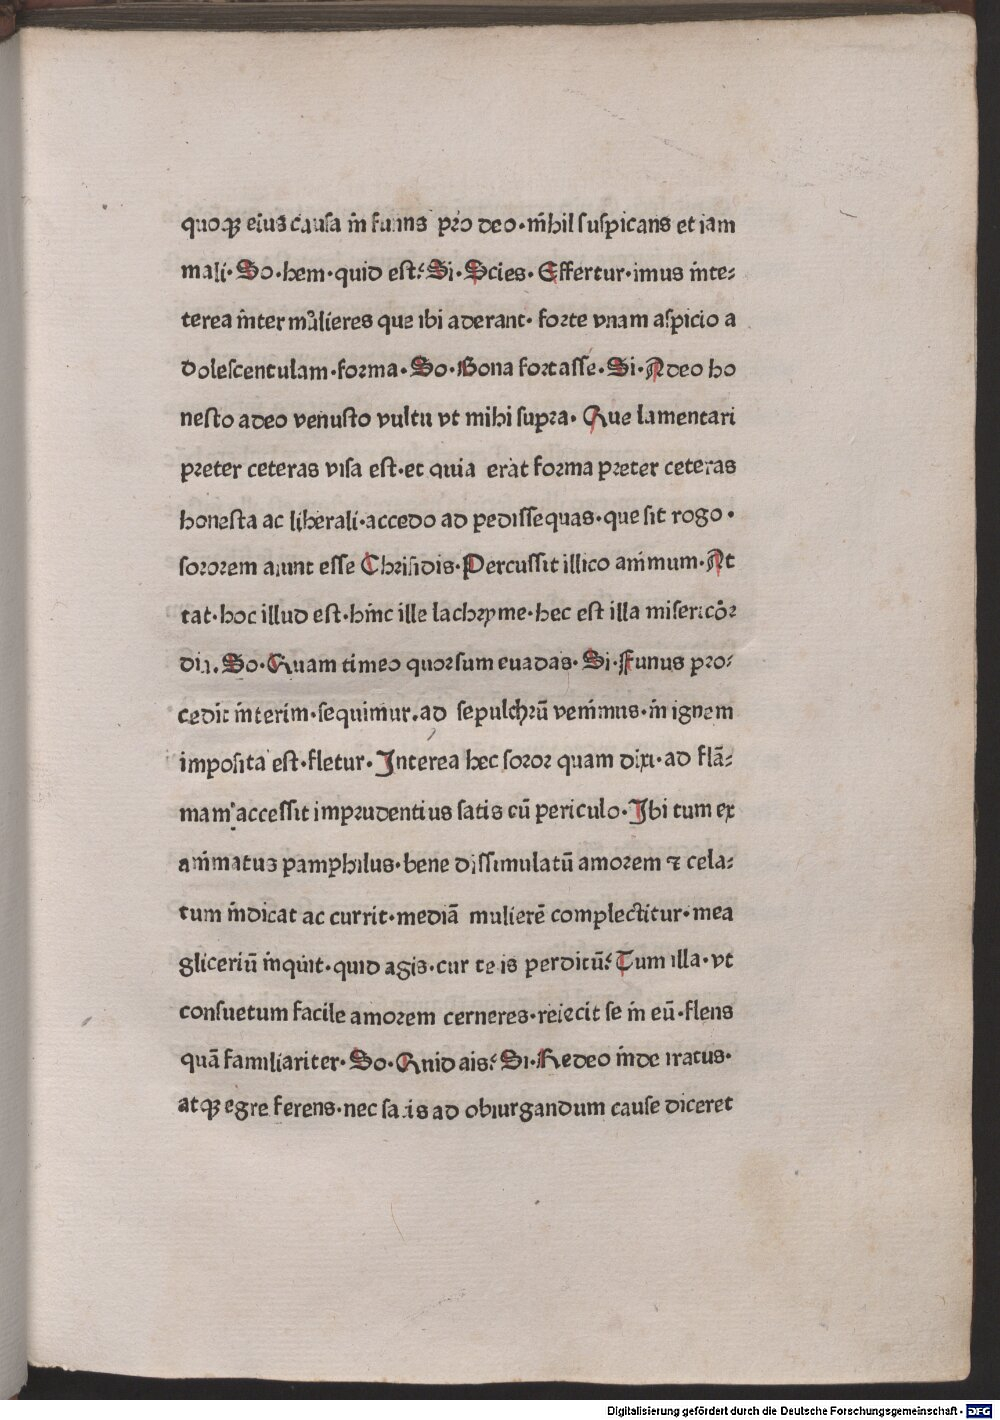 quoqꝫ eius causa in funus prodeo·nihil suspicans et iam
mali·So·hem·quid est? Si·Scies·Effertur·imus inte-
terea inter mulieres que ibi aderant·forte vnam aspicio a
dolescentulam·forma·So·Bona fortasse·Si·Adeo ho
nesto adeo venusto vultu vt mihi supra·Que lamentari
preter ceteras visa est·et quia erat forma preter ceteras
honesta ac liberali·accedo ad pedissequas·que sit rogo·
sororem aiunt esse Chrisidis·Percussit illico animum·At
tat·hoc illud est·hinc ille lachryme·hec est illa misericor
dia.So·Quam timeo quorsum euadas·Si·Funus pro-
cedit interim·sequimur.ad sepulchrū venimus·in ignem
imposita est·fletur·Interea hec soror quam dixi·ad flā-
mam accessit imprudentius satis cū periculo·Ibi tum ex
animatus pamphilus·bene dissimulatū amorem ⁊ cela-
tum indicat ac currit·mediā mulierē complectitur·mea
gliceriū inquit·quid agis·cur te is perditū? Tum illa·vt
consuetum facile amorem cerneres·reiecit se in eū·flens
quā familiariter·So·Quid ais? Si·Redeo inde iratus·
atqꝫ egre ferens·nec satis ad obiurgandum cause diceret
Digitalisierung gefördert durch die Deutsche Forschungsgemeinschaft - DFG